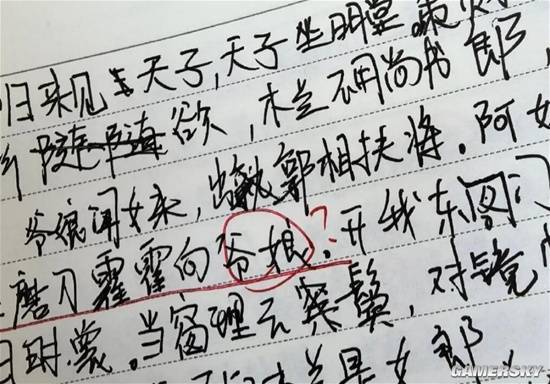 归来见天子,天子坐明堂.
欲,木兰不用尚书郎,
爷娘闻女来,出郭相扶将.阿
磨刀霍霍向爷娘?.开我东阁门
时裳.当窗理云鬓,对镜
是女郎.
GAMERSKY